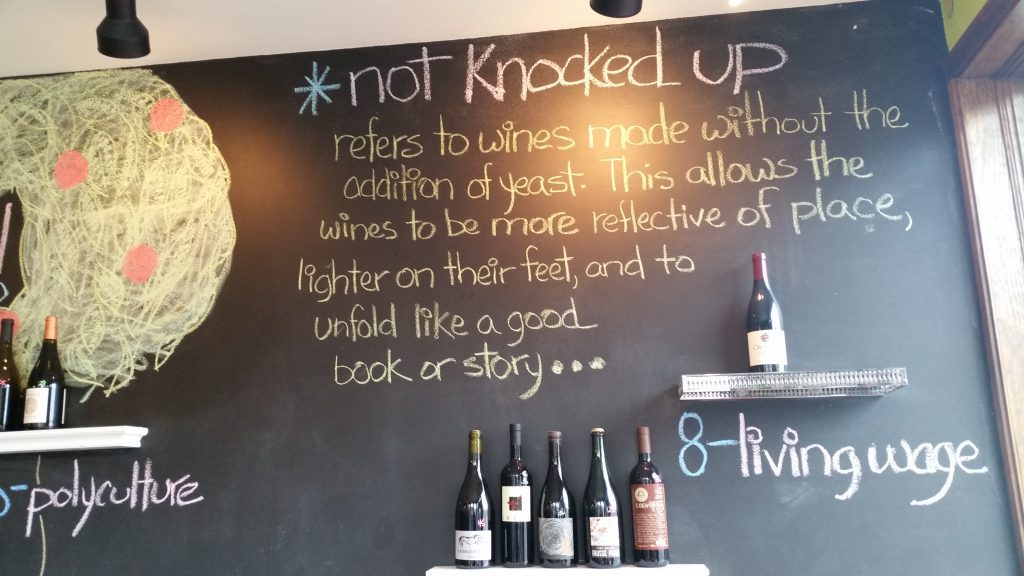 *not Knocked up
refers to wines made without the
addition of yeast. This allows the
wines to be more reflective of place,
lighter on their feet, and to
unfold like a good
book or story...
8-living wage
-polyculture